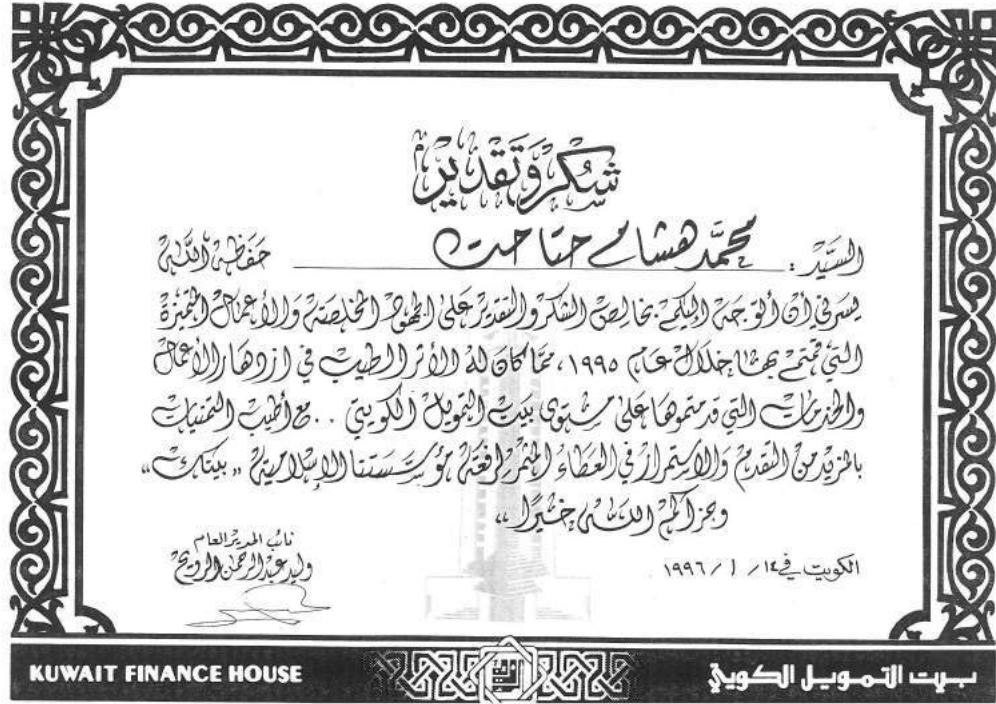 شكر وتقدير
السيد : محمد هشام حتاحت حفظه الله
يسرني أن أتوجه إليكم بخالص الشكر والتقدير على الجهود المخلصة والأعمال المتميزة
التي قمتم بها خلال عام ١٩٩٥، مما كان له الأثر الطيب في ازدهار الأعمال
والخدمات التي قدمتموها على مستوى بيت التمويل الكويتي .. مع أطيب التمنيات
بالمزيد من التقدم والاستمرار في العطاء المثمر لرفعة مؤسستنا الإسلامية „ بيتك “
وجزاكم الله خيرًا „
نائب المدير العام
وليد عبدالرحمن الرويح
الكويت في ١٤ / ١ / ١٩٩٦
KUWAIT FINANCE HOUSE بيت التمويل الكويتي